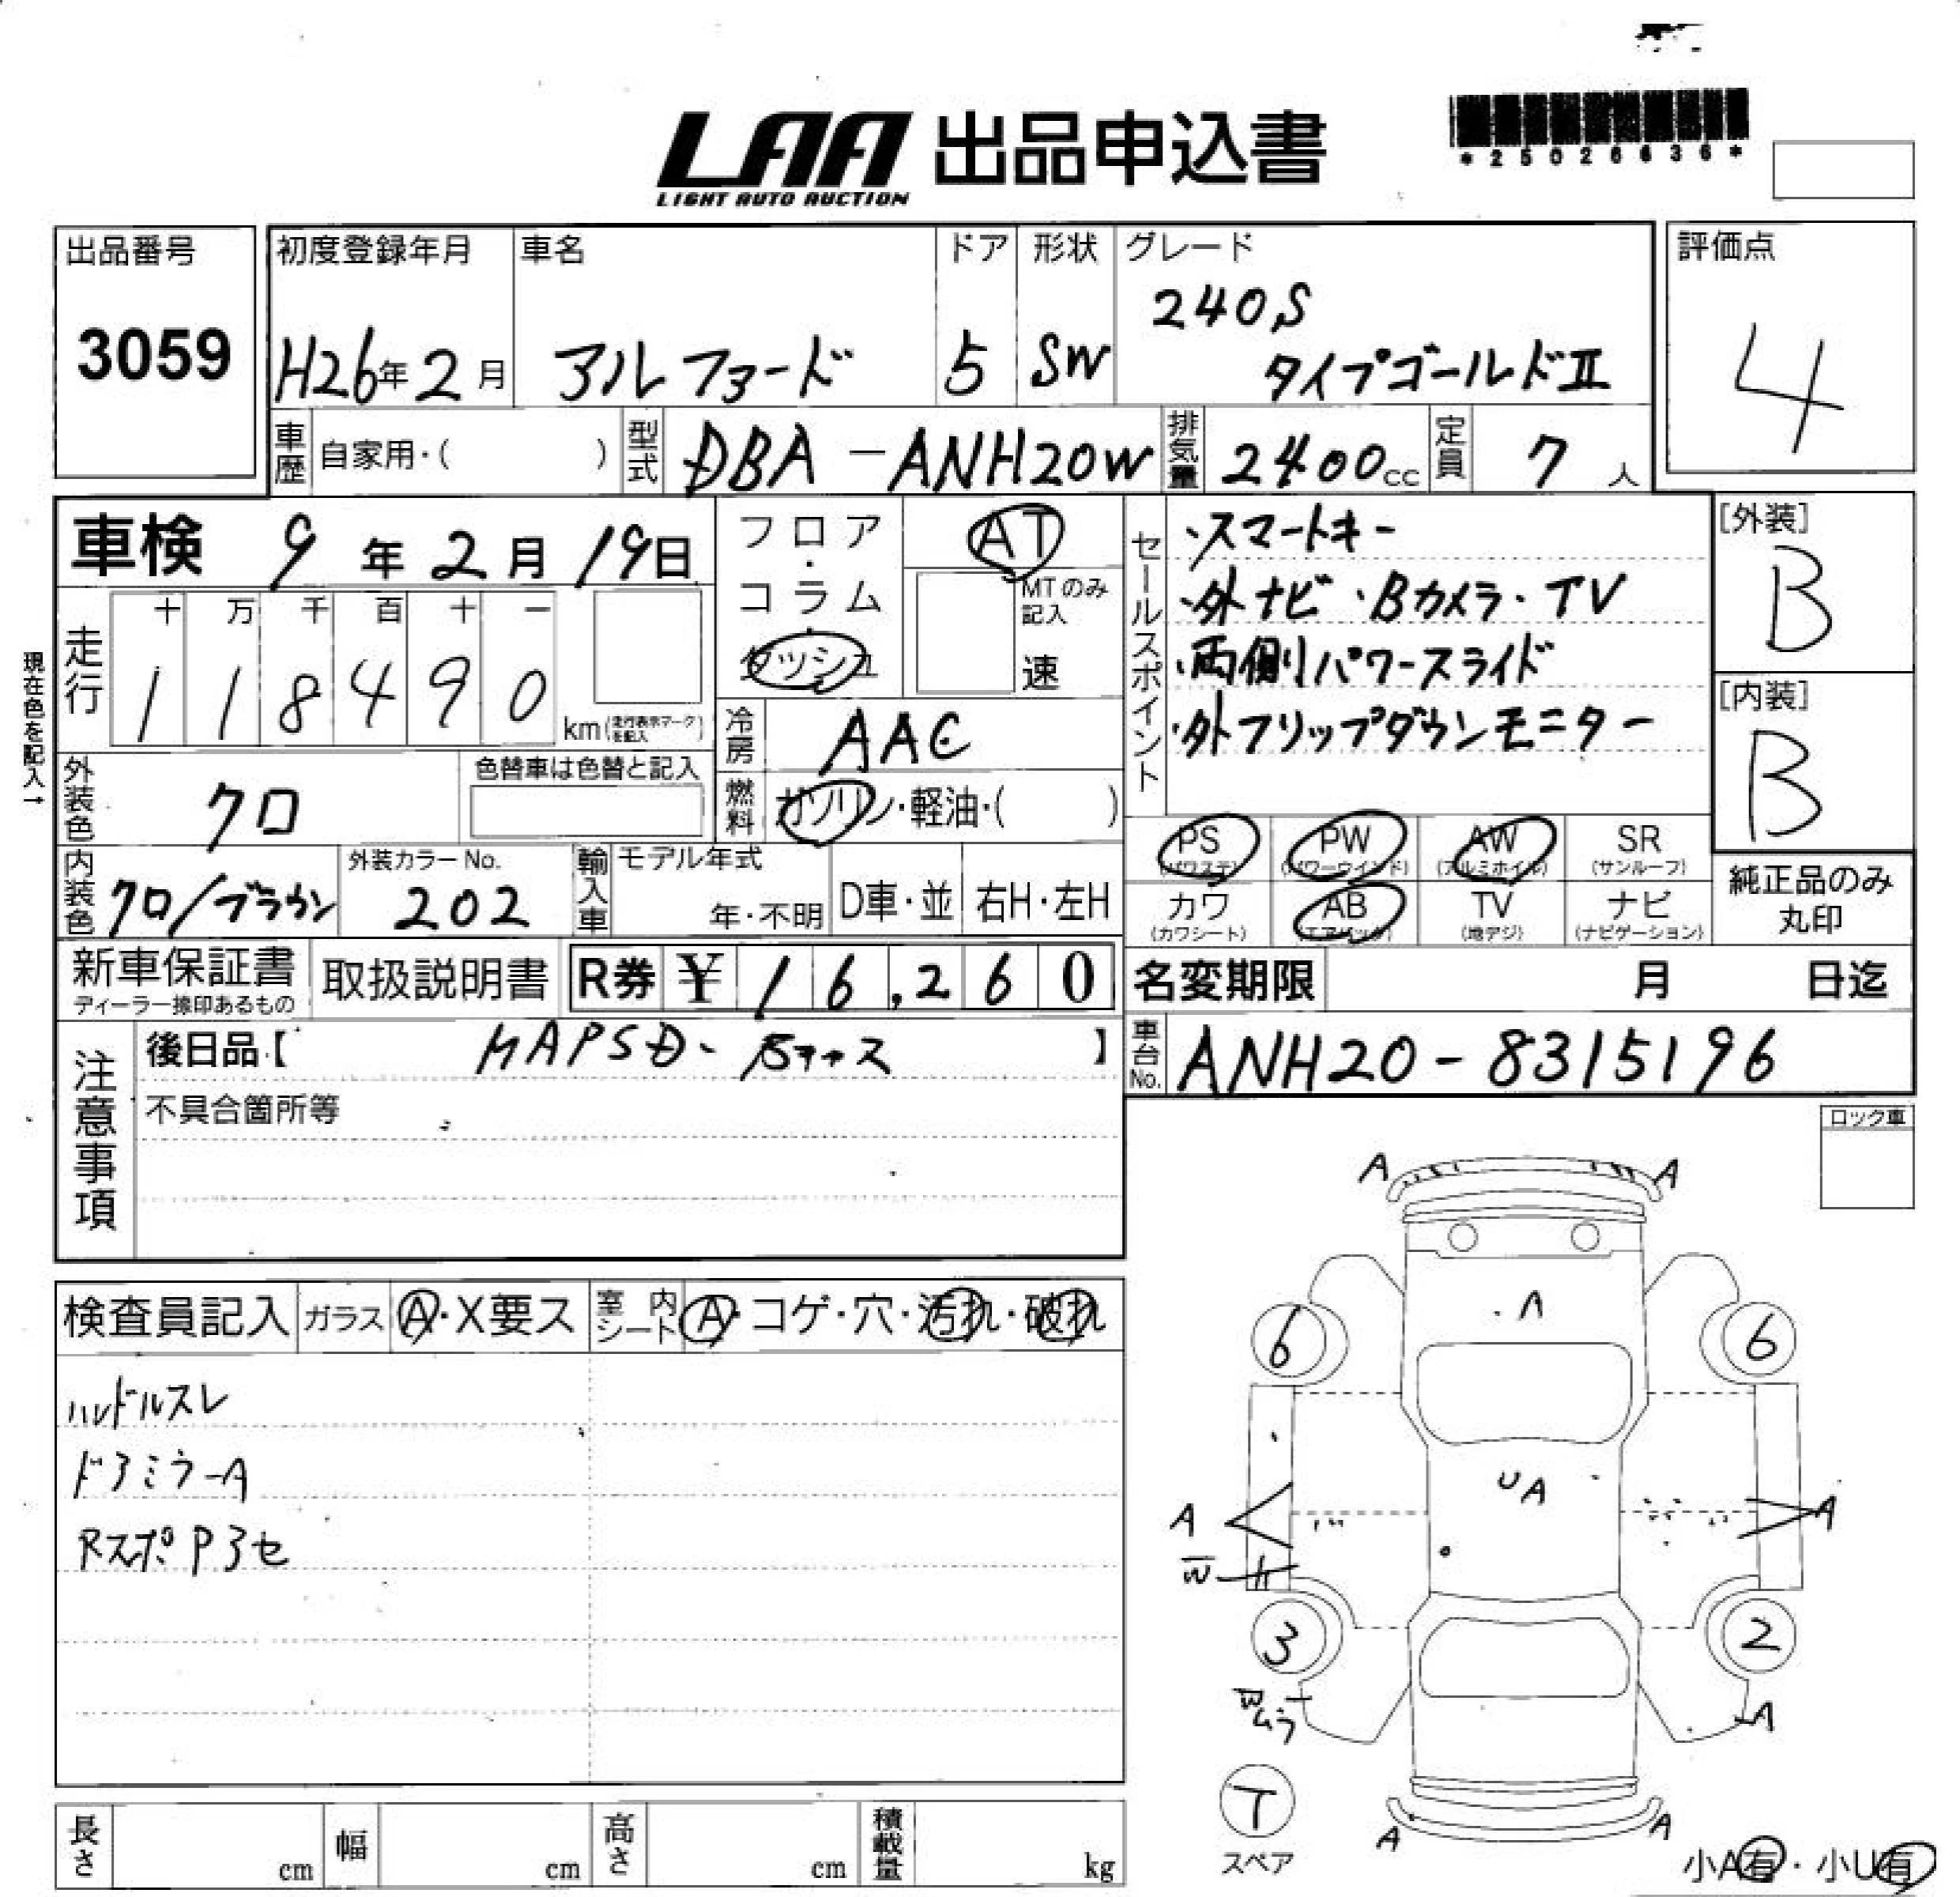 LAA 出品申込書
LIGHT AUTO AUCTION
*25026636*
出品番号
3059
初度登録年月
H26年2月
車名
アルファード
ドア
5
形状
SW
グレード
240S
タイプゴールドⅡ
評価点
4
車歴
自家用・( )
型式
DBA-ANH20W
排気量
2400cc
定員
7人
車検 9年2月19日
フロア・コラム・ダッシュ
AT
MTのみ記入
速
セールスポイント
・スマートキー
・外ナビ・Bカメラ・TV
・両側パワースライド
・外フリップダウンモニター
[外装]
B
[内装]
B
現在色を記入→
走行
十 万 千 百 十 一
1 1 8 4 9 0
km(走行表示マークを記入)
冷房
AAC
外装色
クロ
色替車は色替と記入
燃料
ガソリン・軽油・( )
内装色
クロ/ブラウン
外装カラーNo.
202
輸入車
モデル年式
年・不明
D車・並
右H・左H
PS
(パワステ)
PW
(パワーウインド)
AW
(アルミホイル)
SR
(サンルーフ)
カワ
(カワシート)
AB
(エアバック)
TV
(地デジ)
ナビ
(ナビゲーション)
純正品のみ
丸印
新車保証書
ディーラー捺印あるもの
取扱説明書
R券 ¥16,260
名変期限 月 日迄
注意事項
後日品【 】
不具合箇所等
車台No.
ANH20-8315196
ロック車
検査員記入
ガラス
A・X要ス
室内シート
A・コゲ・穴・汚れ・破れ
ハンドルスレ
ドアミラーA
RスポP3セ
A A
A
6 6
UA
A A
W
3 2
W
ムラ
A
T
スペア
A A
小A有・小U有
長さ cm
幅 cm
高さ cm
積載量 kg